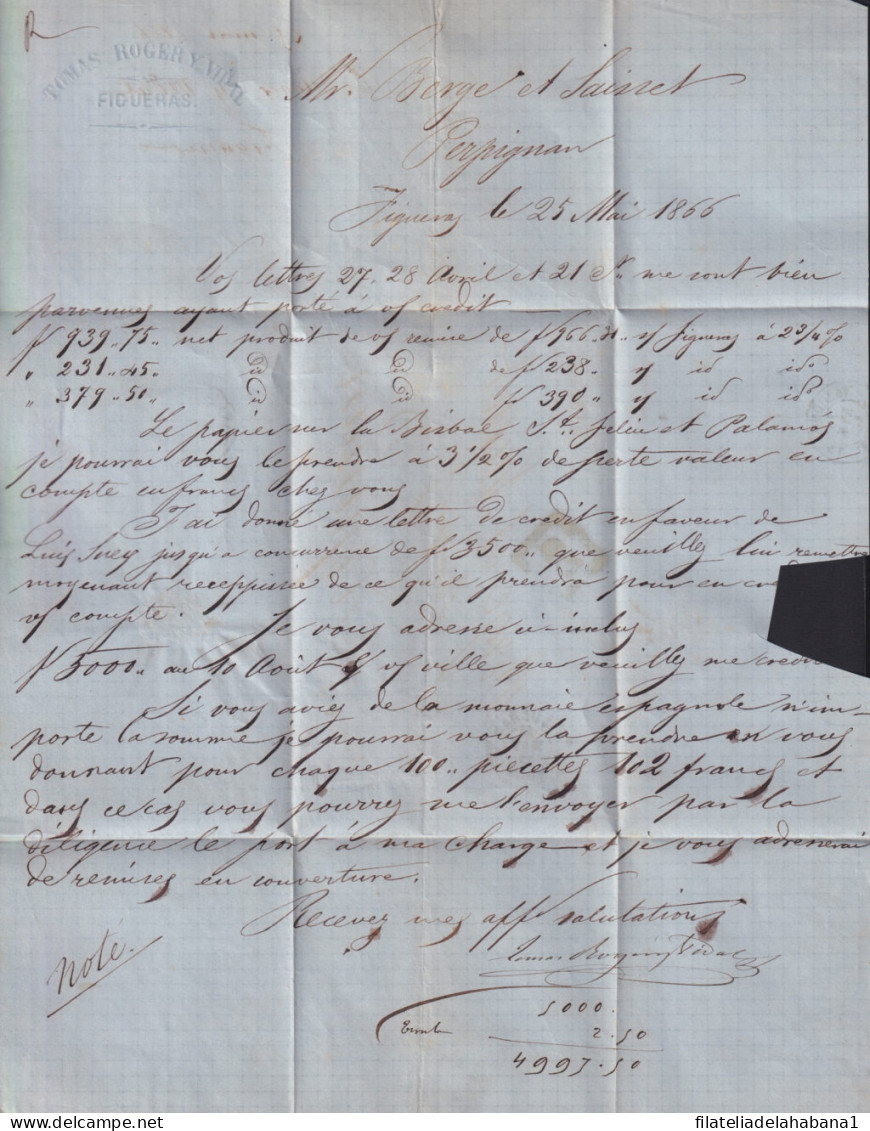 R
TOMAS ROGER Y VIDAL
FIGUERAS.
Mr. Berge et Saisset
Perpignan
Figueras le 25 Mai 1866
Vos lettres 27, 28 Avril et 21 Ct me sont bien
parvenues ayant porté à v/ credit
f 939 .. 75 .. net produit de v/ remise de f 966.30 s/ Figueras à 2 3/4 %
" 231 .. 45 .. Do Do de f 238 .. s/ id ido
" 379 .. 50 .. Do Do f 390 " s/ id ido
Le papier sur la Bisbal St. Feliu et Palamós
je pourrai vous le prendre à 3 1/2 % de perte valeur en
compte en francs chez vous
J'ai donné une lettre de credit en faveur de
Luis jusqu'a concurrence de f 3500 .. que veuillez lui remettre
moyenant recepissée de ce qu'il prendra pour en
v/ compte. Je vous adresse ci-inclus
f 5000 .. au 10 Août s/ v/ ville que veuillez me
Si vous aviez de la monnaie espagnole n'im-
porte la somme je pourrai vous la prendre en vous
donnant pour chaque 100 .. piecettes 102 francs et
dans ce cas vous pourrez me l'envoyer par la
diligence le port à ma charge et je vous adresserai
de remises en couverture.
Recevez mes aff salutations
Tomas Roger y Vidal
Noté.
5000.
Timb 2.50
4997.50
filateliadelahabana1